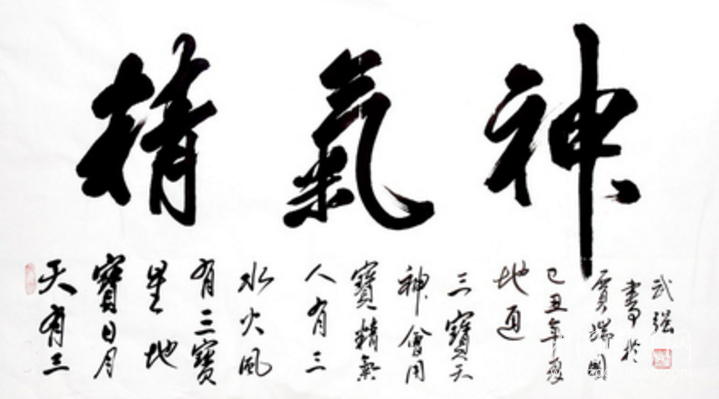 精氣神
天有三
寶日月
星地
有三寶
水火風
人有三
寶精氣
神會用
三寶天
地通
己丑年夏
書於
武强